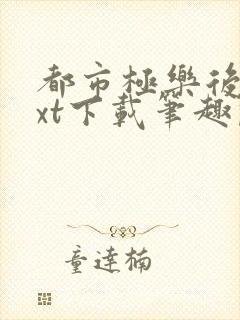 都市極樂後
xt下載筆趣
童達楠